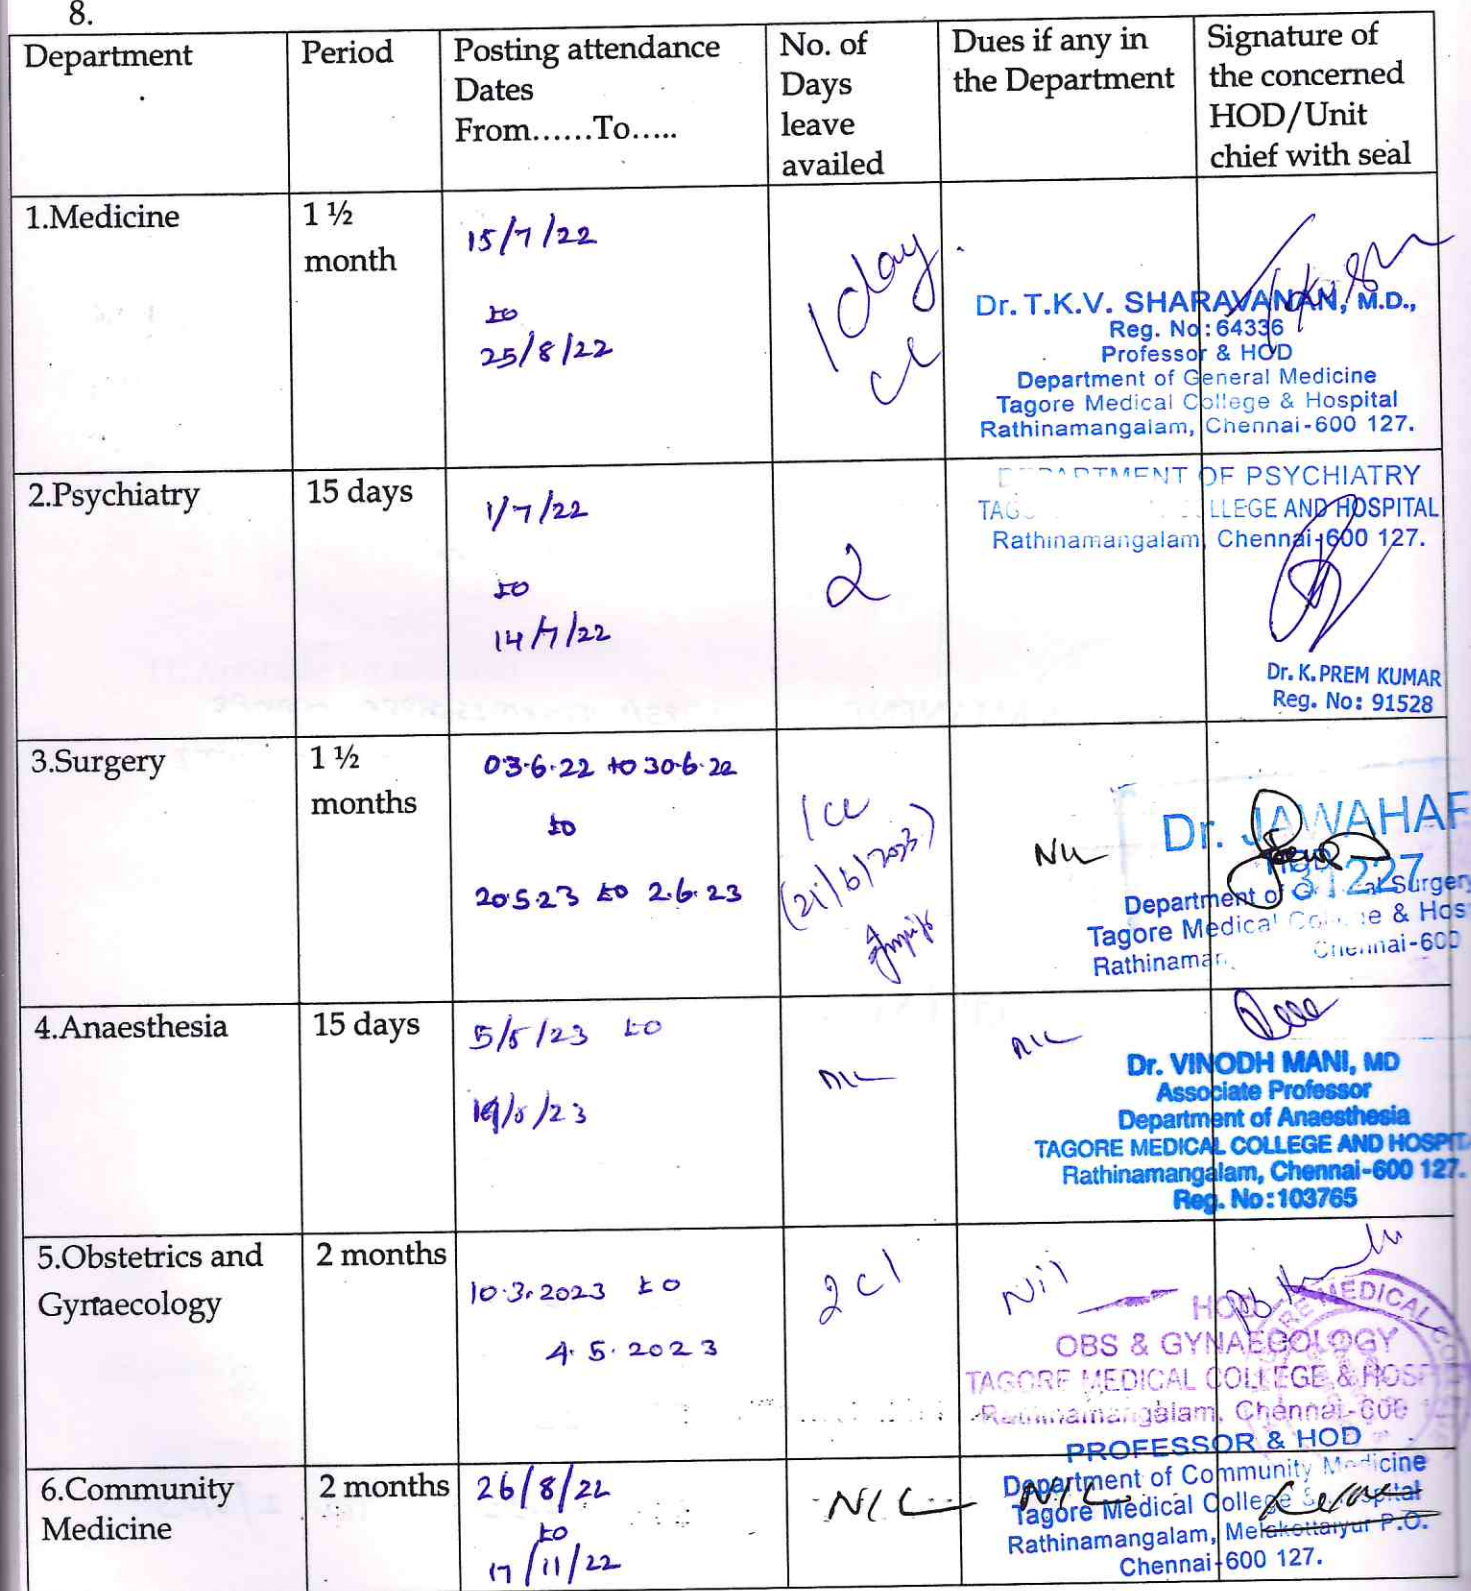 8.
Department
Period
Posting attendance
Dates
From......To.....
No. of
Days
leave
availed
Dues if any in
the Department
Signature of
the concerned
HOD/Unit
chief with seal
1.Medicine
1 ½
month
15/7/22
to
25/8/22
1 day
cl
Dr. T.K.V. SHARAVANAN, M.D.,
Reg. No: 64336
Professor & HOD
Department of General Medicine
Tagore Medical College & Hospital
Rathinamangalam, Chennai-600 127.
2.Psychiatry
15 days
1/7/22
to
14/7/22
2
DEPARTMENT OF PSYCHIATRY
COLLEGE AND HOSPITAL
Rathinamangalam, Chennai-600 127.
Dr. K. PREM KUMAR
Reg. No: 91528
3.Surgery
1 ½
months
03.6.22 to 30.6.22
to
20.5.23 to 2.6.23
1 cl
Nil
Dr. JAWAHAR
31227
Department of General Surgery
Tagore Medical College & Hos
Chennai-600
4.Anaesthesia
15 days
5/5/23 to
19/5/23
NIL
NIL
Dr. VINODH MANI, MD
Associate Professor
Department of Anaesthesia
TAGORE MEDICAL COLLEGE AND HOSPIT
Rathinamangalam, Chennai-600 127.
Reg. No: 103765
5.Obstetrics and
Gynaecology
2 months
10.3.2023 to
4.5.2023
2 cl
Nil
HOD
OBS & GYNAECOLOGY
TAGORE MEDICAL COLLEGE & HOSP
Rathinamangalam, Chennai-600
6.Community
Medicine
2 months
26/8/22
to
17/11/22
NIL
NIL
PROFESSOR & HOD
Department of Community Medicine
Tagore Medical College & Hospital
Rathinamangalam, Melakottaiyur P.O.
Chennai-600 127.